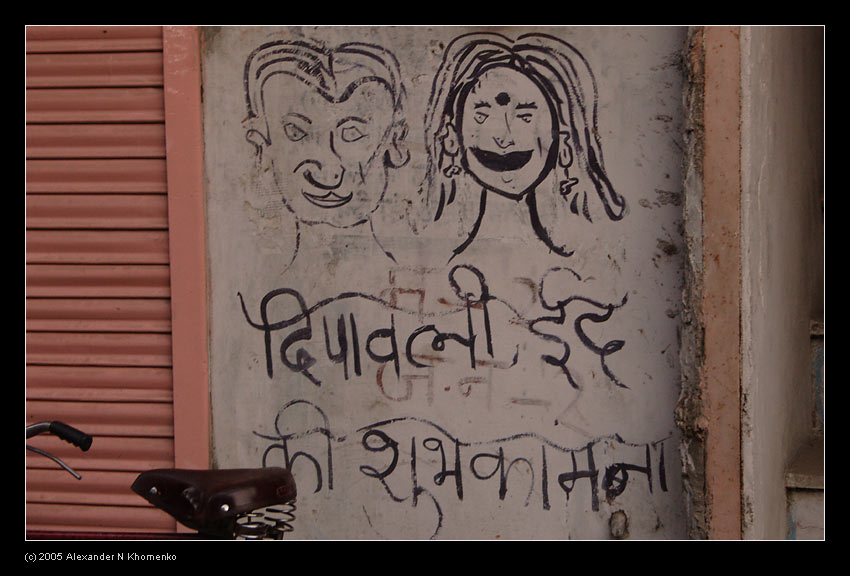 दिपावली, ईद
की शुभकामना
(c) 2005 Alexander N Khomenko